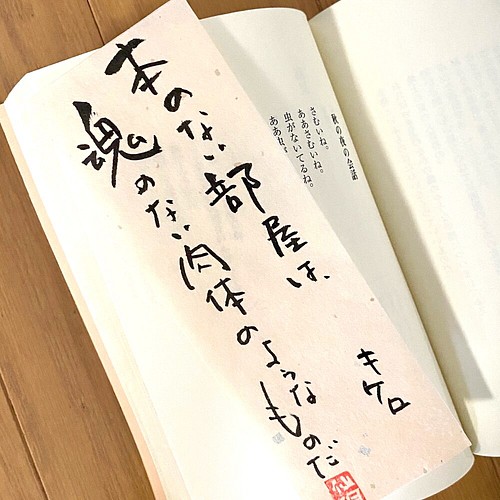 秋の夜の会話
さむいね。
ああさむいね。
虫がないてるね。
ああ
本のない部屋は、
魂のない肉体のようなものだ
キケロ